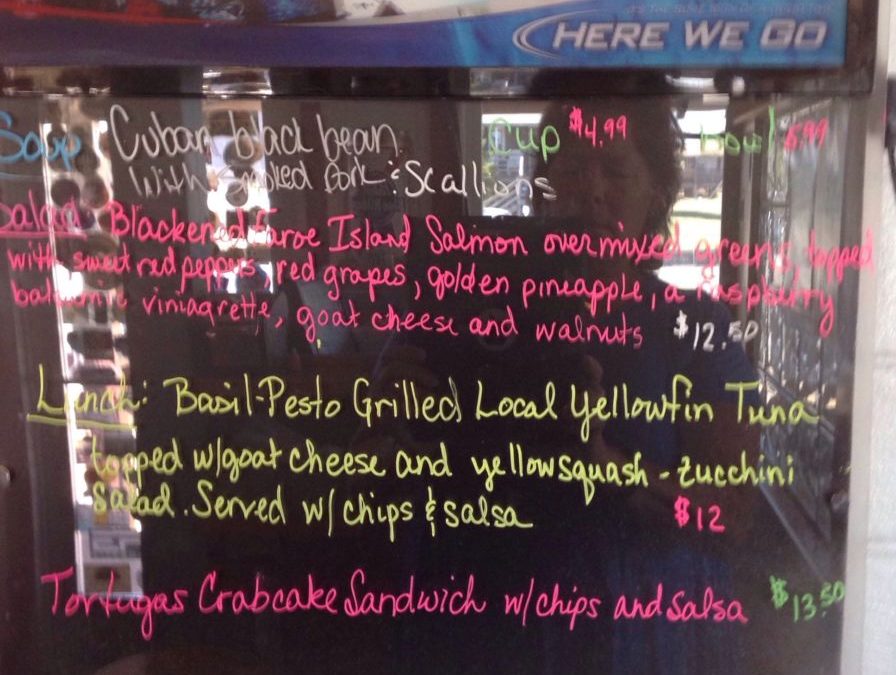 HERE WE GO
Soup Cuban black bean Cup $4.99 bowl 5.99
With Smoked Pork & Scallions
Salad Blackened Faroe Island Salmon over mixed greens, topped
with sweet red peppers, red grapes, golden pineapple, a raspberry
balsamic viniagrette, goat cheese and walnuts $12.50
Lunch: Basil-Pesto Grilled Local Yellowfin Tuna
topped w/goat cheese and yellow squash - zucchini
Salad. Served w/ chips & salsa $12
Tortugas Crabcake Sandwich w/chips and salsa $13.50